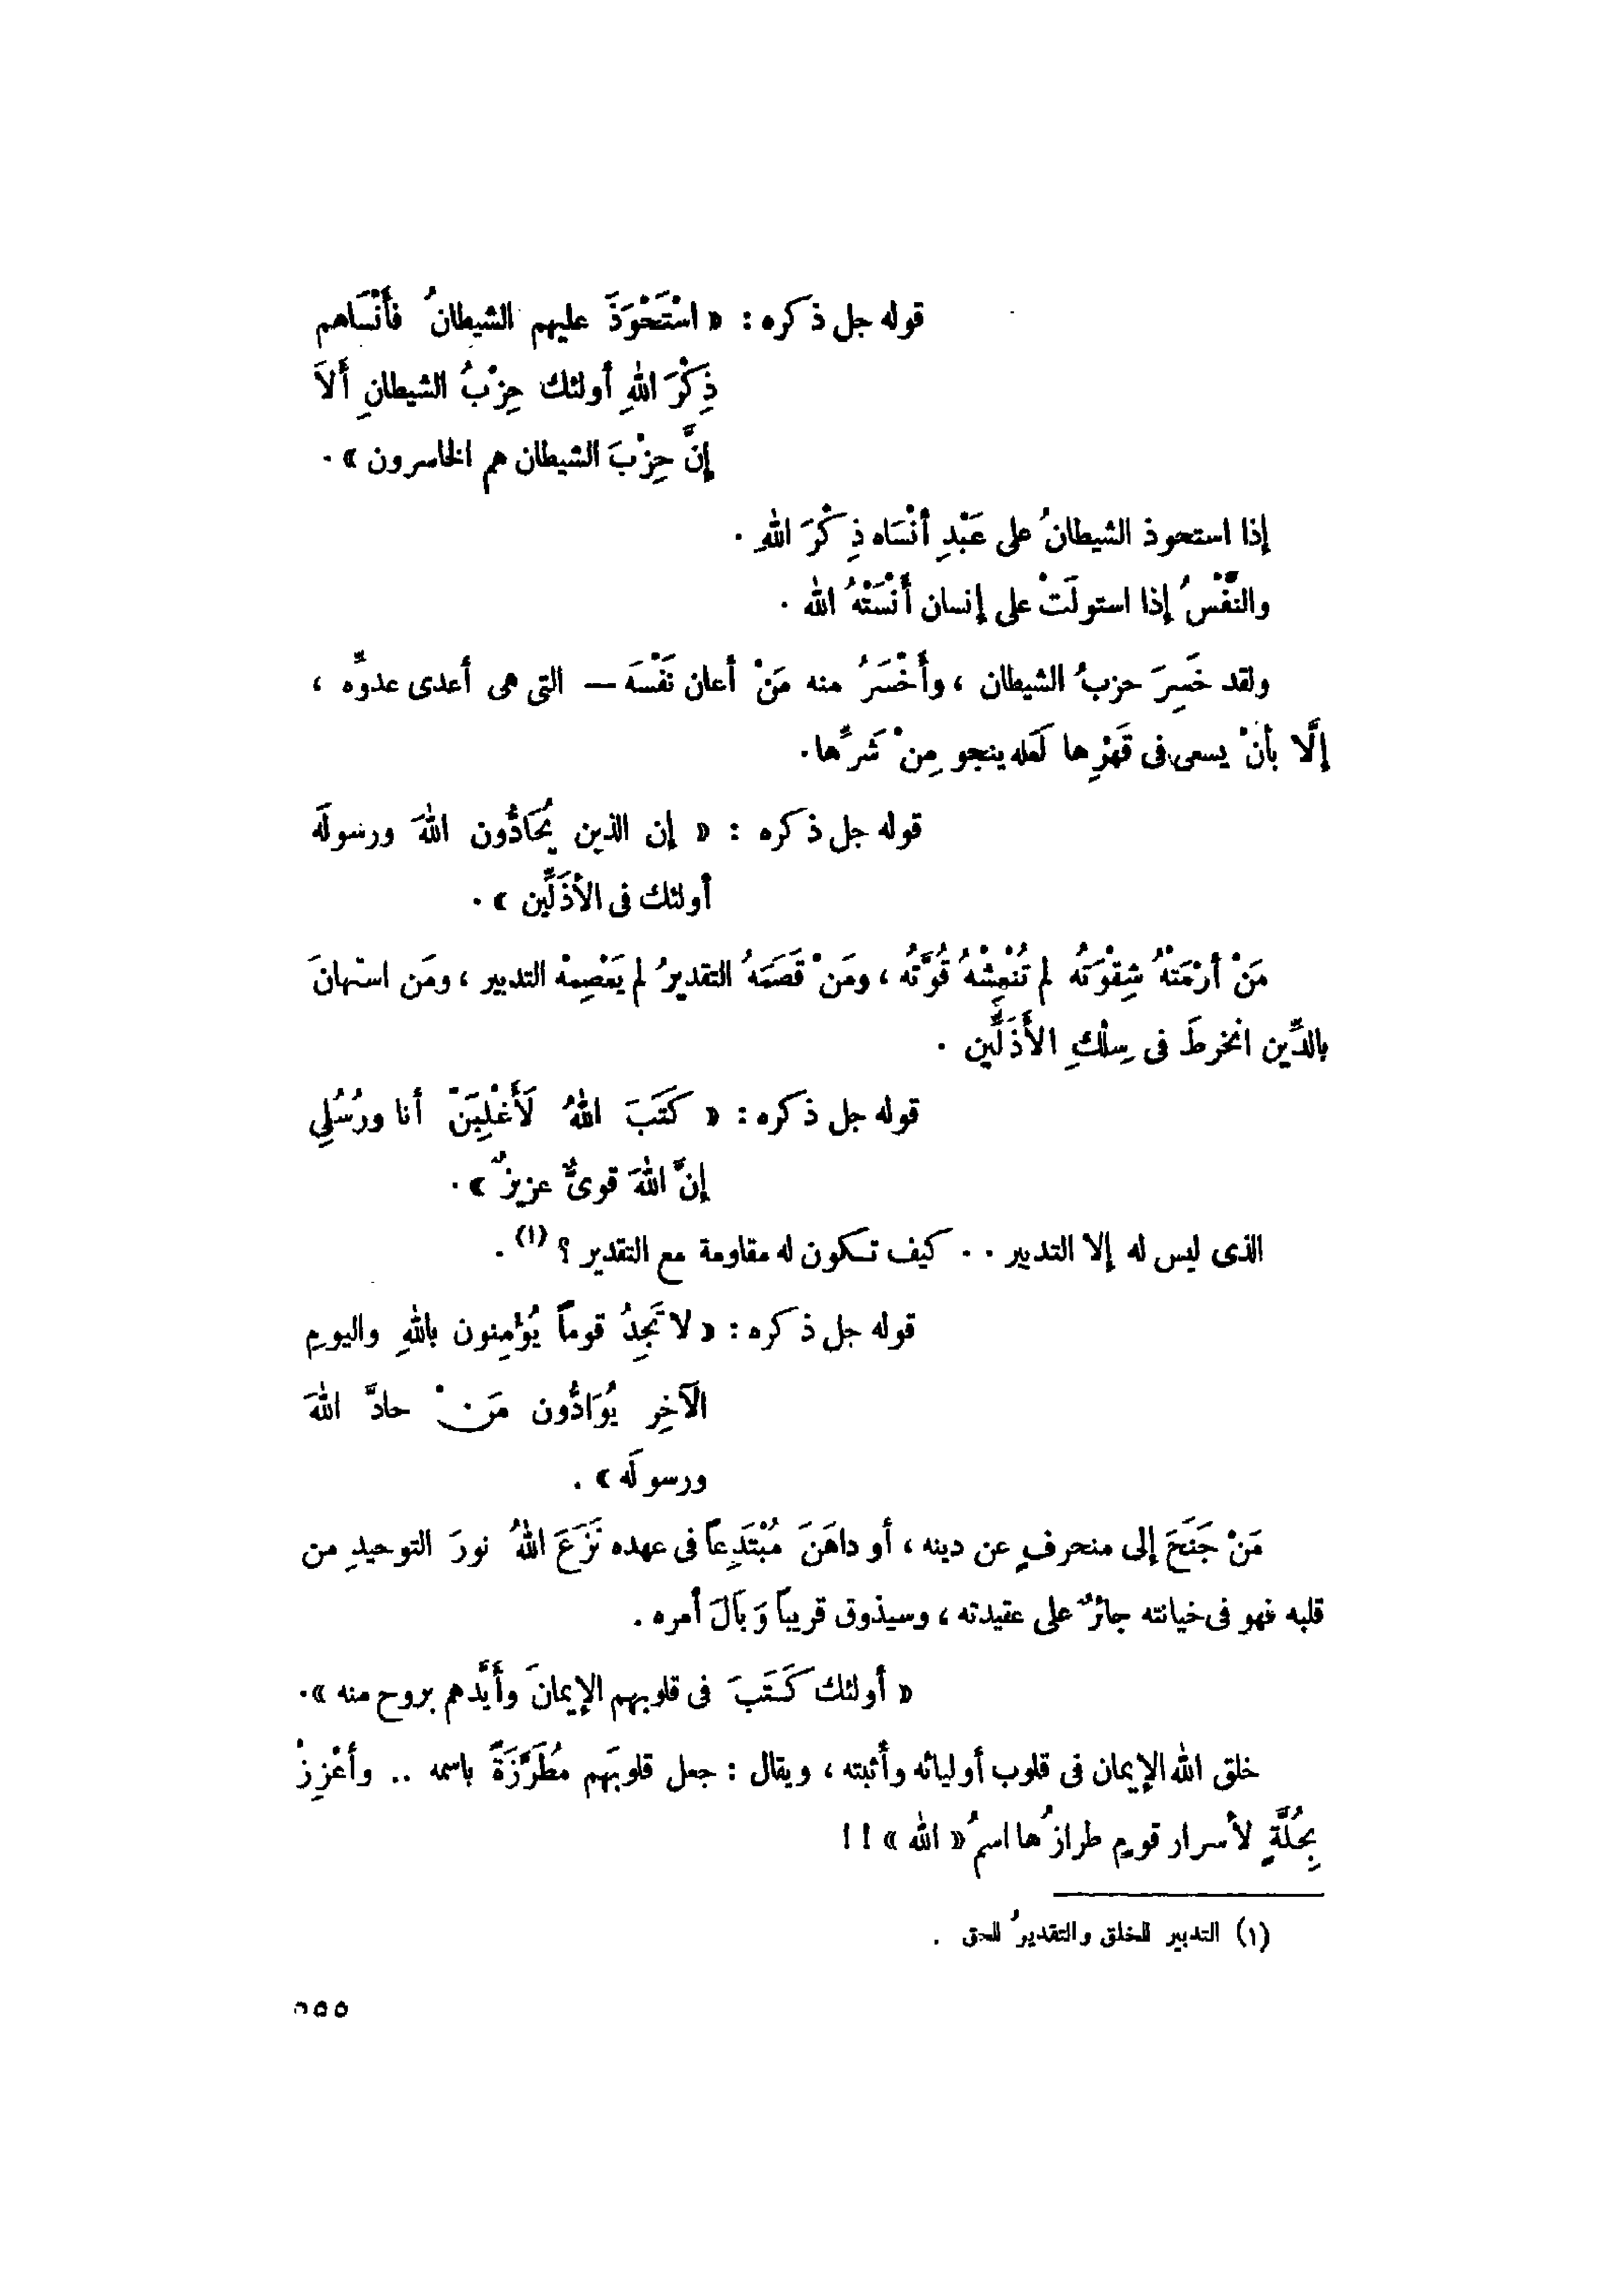 قوله جل ذكره : « اسْتَحْوَذَ عليهم الشيطانُ فأَنْسَاهم
ذِكْرَ اللهِ أولئك حِزْبُ الشيطانِ أَلاَ
إِنَّ حِزْبَ الشيطان هم الخاسرون » .
إذا استحوذ الشيطانُ على عَبْدٍ أنْسَاه ذِكْرَ اللهِ .
والنَّفْسُ إذا استولَتْ على إنسان أَنْسَتْهُ الله .
ولقد خَسِرَ حزبُ الشيطان ، وأَخْسَرُ منه مَنْ أعان نَفْسَه — التى هى أعدى عدوِّه ،
إلَّا بأنْ يسعى فى قَهْرِها لَعَله ينجو مِنْ شَرِّها .
قوله جل ذكره : « إن الذين يُحَادُّون اللهَ ورسولَه
أولئك فى الأذَلِّين » .
مَنْ أرْمَتْهُ شِقْوَتُه لم تُنْعِشْهُ قُوَّتُه ، ومَنْ قَصَمَهُ التقديرُ لم يَعْصِمْه التدبير ، ومَن استهانَ
بالدِّين انخرطَ فى سِلْكِ الأَذَلِّين .
قوله جل ذكره : « كَتَبَ اللهُ لَأَغْلِبَنْ أنا ورُسُلِي
إنَّ اللهَ قوىٌّ عزيزٌ » .
الذى ليس له إلا التدبير . . كيف تكون له مقاومة مع التقدير ؟ (١) .
قوله جل ذكره : « لا تَجِدُ قوماً يُؤمِنون باللهِ واليومِ
الآخِرِ يُوَادُّون مَنْ حادَّ اللهَ
ورسولَه » .
مَنْ جَنَحَ إلى منحرفٍ عن دينه ، أو داهَنَ مُبْتَدِعاً فى عهده نَزَعَ اللهُ نورَ التوحيدِ من
قلبه فهو فى خيانته جائرٌ على عقيدته ، وسيذوق قريباً وَبَالَ أمره .
« أولئك كَتَبَ فى قلوبهم الإيمانَ وأَيَّدهم بروح منه » .
خلق الله الإيمان فى قلوب أوليائه وأثبته ، ويقال : جعل قلوبَهم مُطَرَّزَةً باسمه .. وأعْزِزْ
بِحُلَّةٍ لأسرار قومٍ طرازُها اسمُ « الله » ! !
(١) التدبير للخلق والتقديرُ للحق .
٥٥٥